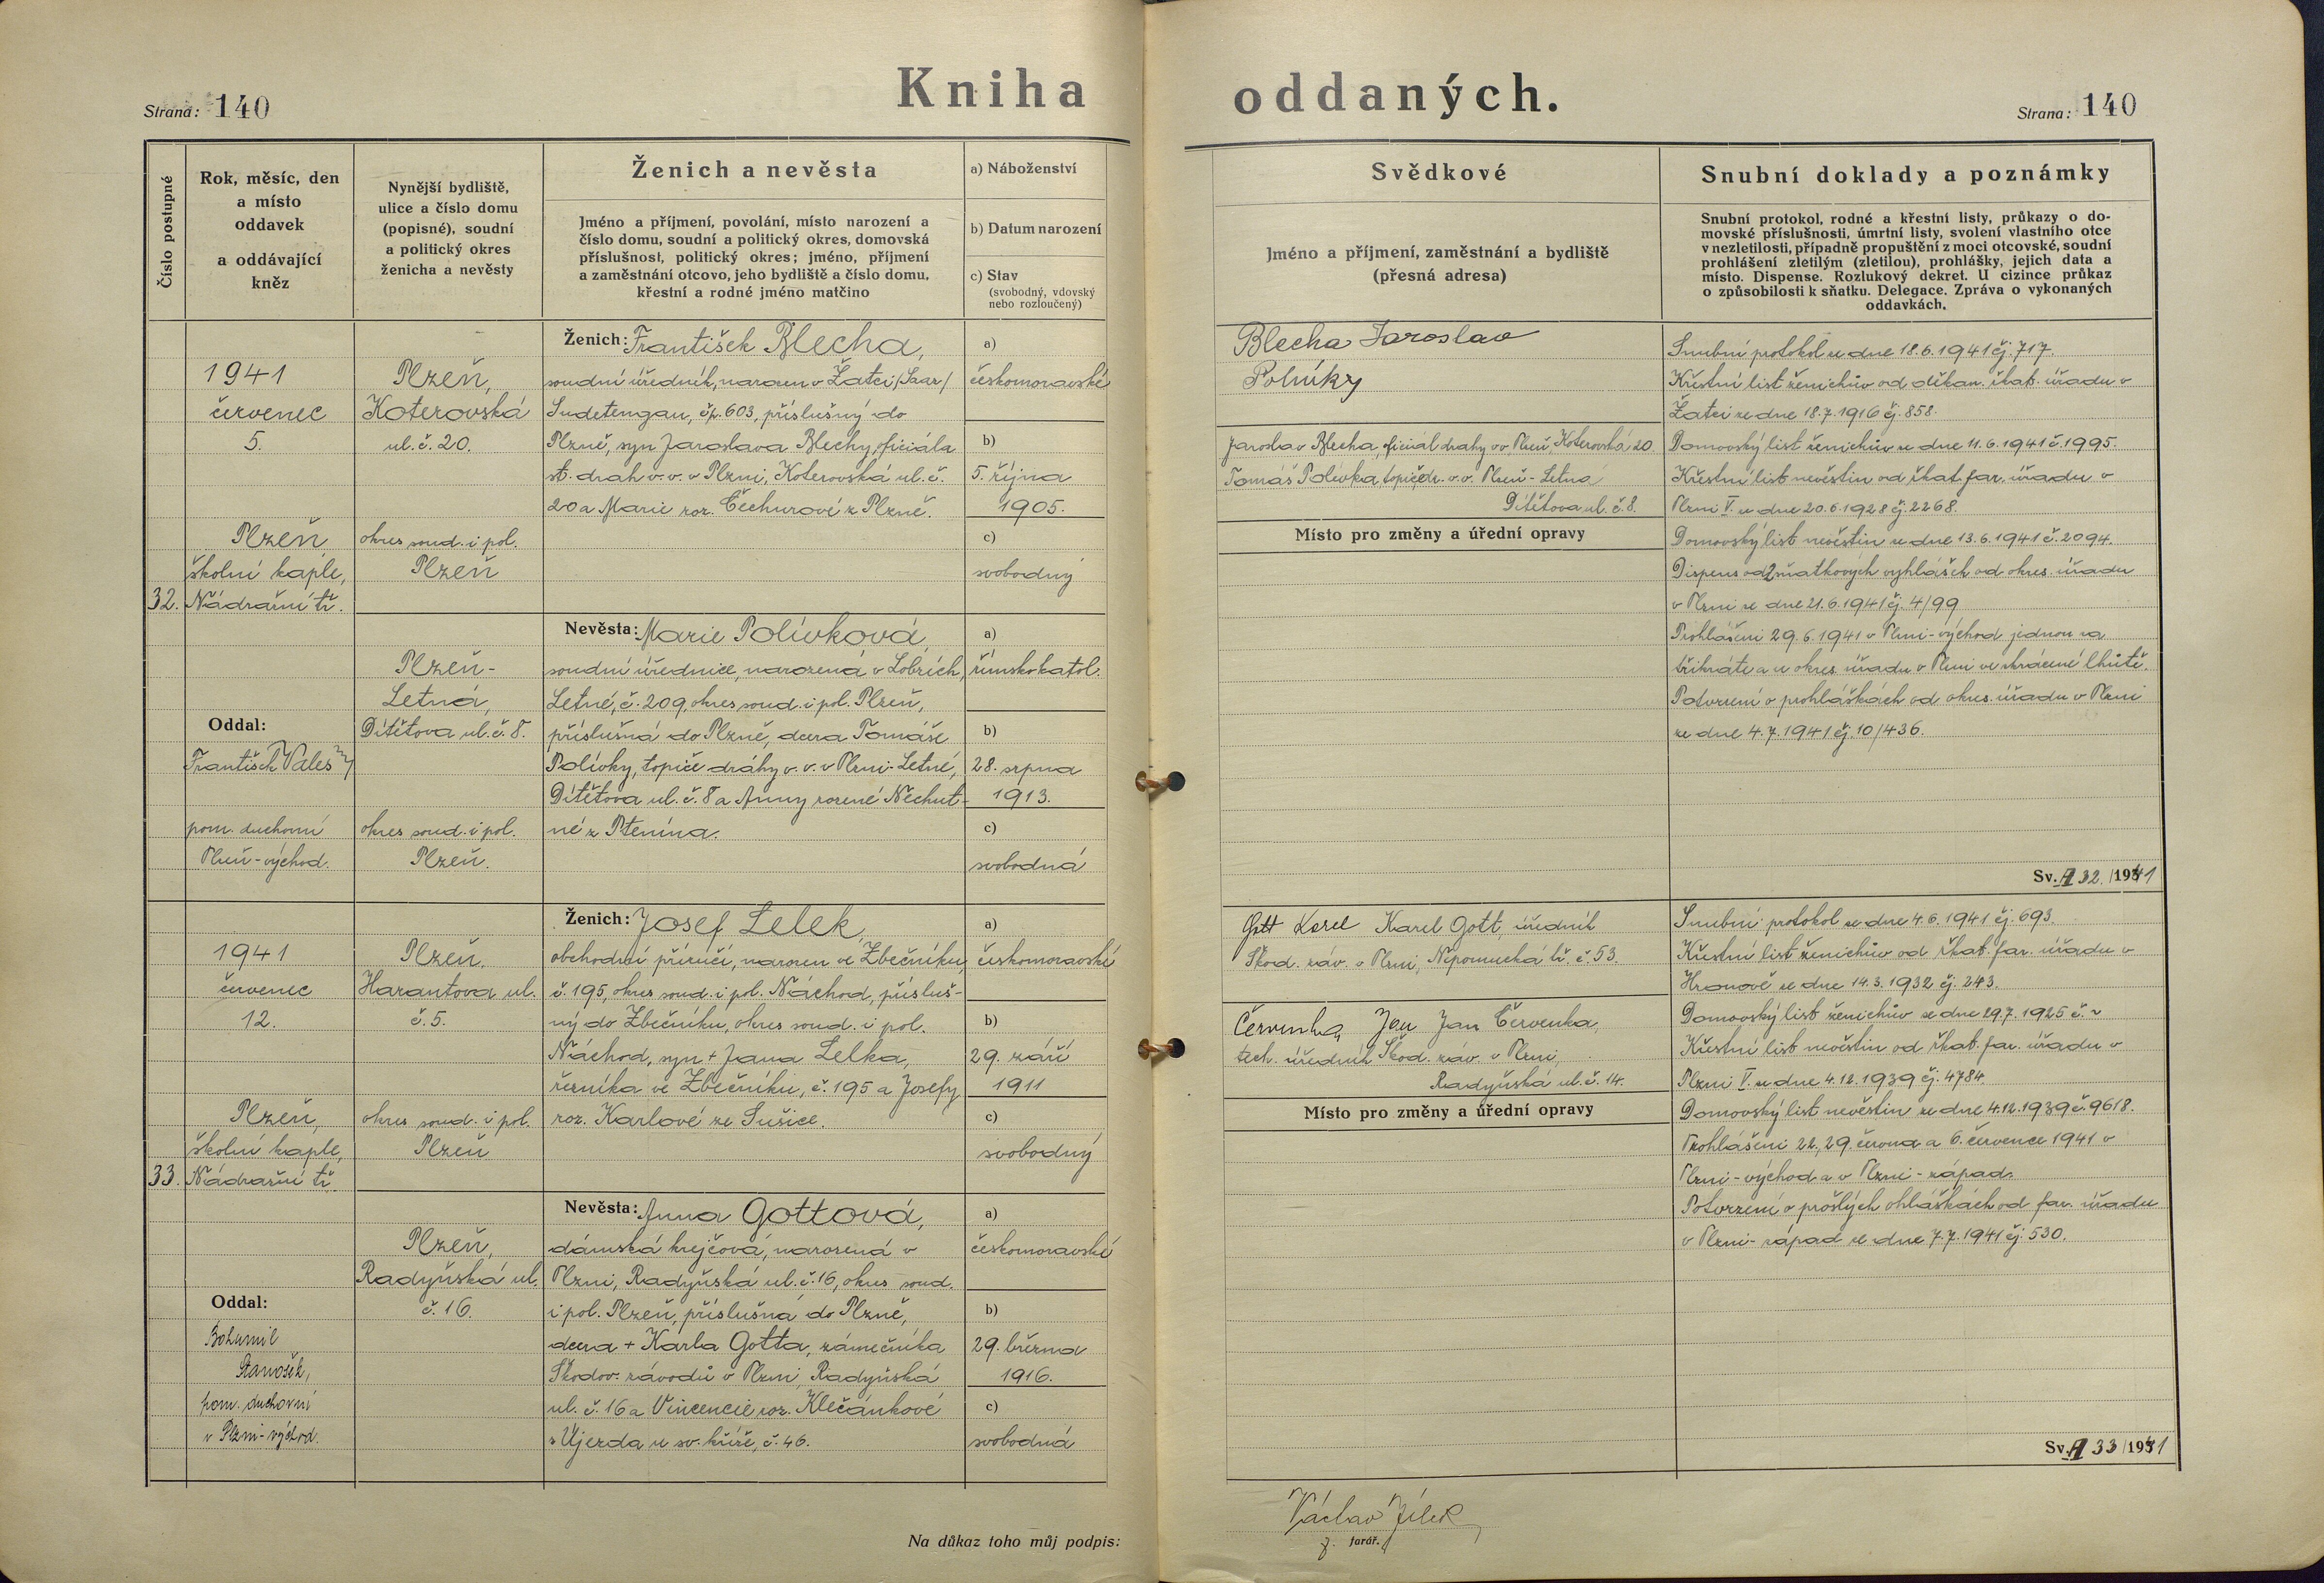 Kniha oddaných.
Strana: 140
Strana: 140
Číslo postupné
Rok, měsíc, den
a místo
oddavek
a oddávající
kněz
Nynější bydliště,
ulice a číslo domu
(popisné), soudní
a politický okres
ženicha a nevěsty
Ženich a nevěsta
Jméno a příjmení, povolání, místo narození a
číslo domu, soudní a politický okres, domovská
příslušnost, politický okres; jméno, příjmení
a zaměstnání otcovo, jeho bydliště a číslo domu,
křestní a rodné jméno matčino
a) Náboženství
b) Datum narození
c) Stav
(svobodný, vdovský
nebo rozloučený)
Svědkové
Jméno a příjmení, zaměstnání a bydliště
(přesná adresa)
Snubní doklady a poznámky
Snubní protokol, rodné a křestní listy, průkazy o do-
movské příslušnosti, úmrtní listy, svolení vlastního otce
v nezletilosti, případně propuštění z moci otcovské, soudní
prohlášení zletilým (zletilou), prohlášky, jejich data a
místo. Dispense. Rozlukový dekret. U cizince průkaz
o způsobilosti k sňatku. Delegace. Zpráva o vykonaných
oddavkách.
32.
1941
červenec
5.
Plzeň
školní kaple,
Nádražní tř.
Oddal:
František Valeš
pom. duchovní
Plzeň-východ.
Plzeň,
Koterovská
ul. č. 20.
okres soud. i pol.
Plzeň
Plzeň-
Letná,
Dítětova ul. č. 8.
okres soud. i pol.
Plzeň.
Ženich: František Blecha,
soudní úředník, narozen v Žatci /Saaz/
Sudetengau, čp. 603, příslušný do
Plzně, syn Jaroslava Blechy, oficiála
st. drah v. v. v Plzni, Koterovská ul. č.
20 a Marie roz. Čechurové z Plzně.
Nevěsta: Marie Polívková
soudní úřednice, narozená v Lobzích,
Letné, č. 209, okres soud. i pol. Plzeň,
příslušná do Plzně, dcera Tomáše
Polívky, topiče dráhy v. v. v Plzni-Letné,
Dítětova ul. č. 8 a Anny rozené Nechut-
né z Ptenína.
a)
českomoravské
b)
5. října
1905.
c)
svobodný
a)
římskokatol.
b)
28. srpna
1913.
c)
svobodná
Blecha Jaroslav
Jaroslav Blecha, oficiál dráhy vv, Plzeň, Koterovská 20.
Tomáš Polívka, topič dr. v. v. Plzeň-Letná
Dítětova ul. č. 8.
Místo pro změny a úřední opravy
Snubní protokol ze dne 18.6.1941 čj. 717.
Křestní list ženichův od děkan. řkat. úřadu v
Žatci ze dne 18.7.1916 čj. 858.
Domovský list ženichův ze dne 11.6.1941 č. 1995.
Křestní list nevěstin od řkat. far. úřadu v
Plzni V. ze dne 20.6.1928 čj. 2268.
Domovský list nevěstin ze dne 13.6.1941 č. 2094.
Dispens od 2 sňatkových vyhlášek od okres. úřadu
v Plzni ze dne 21.6.1941 čj. 4/99
Prohlášeni 29.6.1941 v Plzni-východ jednou za
třikráte a u okres. úřadu v Plzni ve zkrácené lhůtě.
Potvrzení o prohláškách od okres. úřadu v Plzni
ze dne 4.7.1941 čj. 10/436.
Sv. A 32./1941
33.
1941
červenec
12.
Plzeň,
školní kaple,
Nádražní tř.
Oddal:
Bohumil
pom. duchovní
v Plzni-východ.
Plzeň.
Harantova ul.
č. 5.
okres soud. i pol.
Plzeň
Plzeň,
Radyňská ul.
č. 16.
Ženich: Josef Lelek,
obchodní příručí, narozen ve Zbečníku,
č. 195, okres soud. i pol. Náchod, přísluš-
ný do Zbečníku, okres soud. i pol.
Náchod, syn + Jana Lelka,
řezníka ve Zbečníku, č. 195 a Josefy
roz. Karlové ze Sušice.
Nevěsta: Anna Gottová,
dámská krejčová, narozená v
Plzni, Radyňská ul. č. 16, okres soud.
i pol. Plzeň, příslušná do Plzně,
dcera + Karla Gotta, zámečníka
Škodov. závodů v Plzni, Radyňská
ul. č. 16 a Vincencie roz. Klečánkové
z Újezda u sv. kříže, č. 46.
a)
českomoravské
b)
29. září
1911
c)
svobodný
a)
českomoravské
b)
29. března
1916.
c)
svobodná
Gott Karel Karel Gott, úředník
Škod. záv. v Plzni, Nepomucká tř. č. 53.
Červenka Jan Jan Červenka,
tech. úředník Škod. záv. v Plzni,
Radyňská ul. č. 14.
Místo pro změny a úřední opravy
Snubní protokol ze dne 4.6.1941 čj. 693.
Křestní list ženichův od řkat. far. úřadu v
Hronově ze dne 14.3.1932 čj. 243.
Domovský list ženichův ze dne 29.7.1925 č.
Křestní list nevěstin od řkat. far. úřadu v
Plzni V. ze dne 4.12.1939 čj. 4784.
Domovský list nevěstin ze dne 4.12.1939 č. 9618.
Prohlášeni 22., 29. června a 6. července 1941 v
Plzni-východ a v Plzni-západ.
Potvrzení o prošlých ohláškách od far. úřadu
v Plzni-západ ze dne 7.7.1941 čj. 530.
Sv. A 33/1941
Na důkaz toho můj podpis:
Václav Jílek
farář.